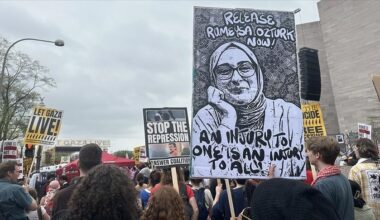 RELEASE
RUMEYSA OZTURK
NOW!
AN INJURY TO
ONE IS AN INJURY
TO ALL
LET GAZA
LIVE!
STOP THE
REPRESSION
ANSWER COALITION
FREE